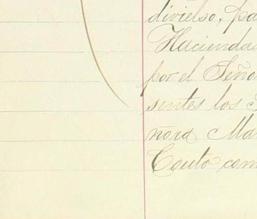 divieso, pa
Hacienda
por el Seño
sentes los
nora Ma
Couto com